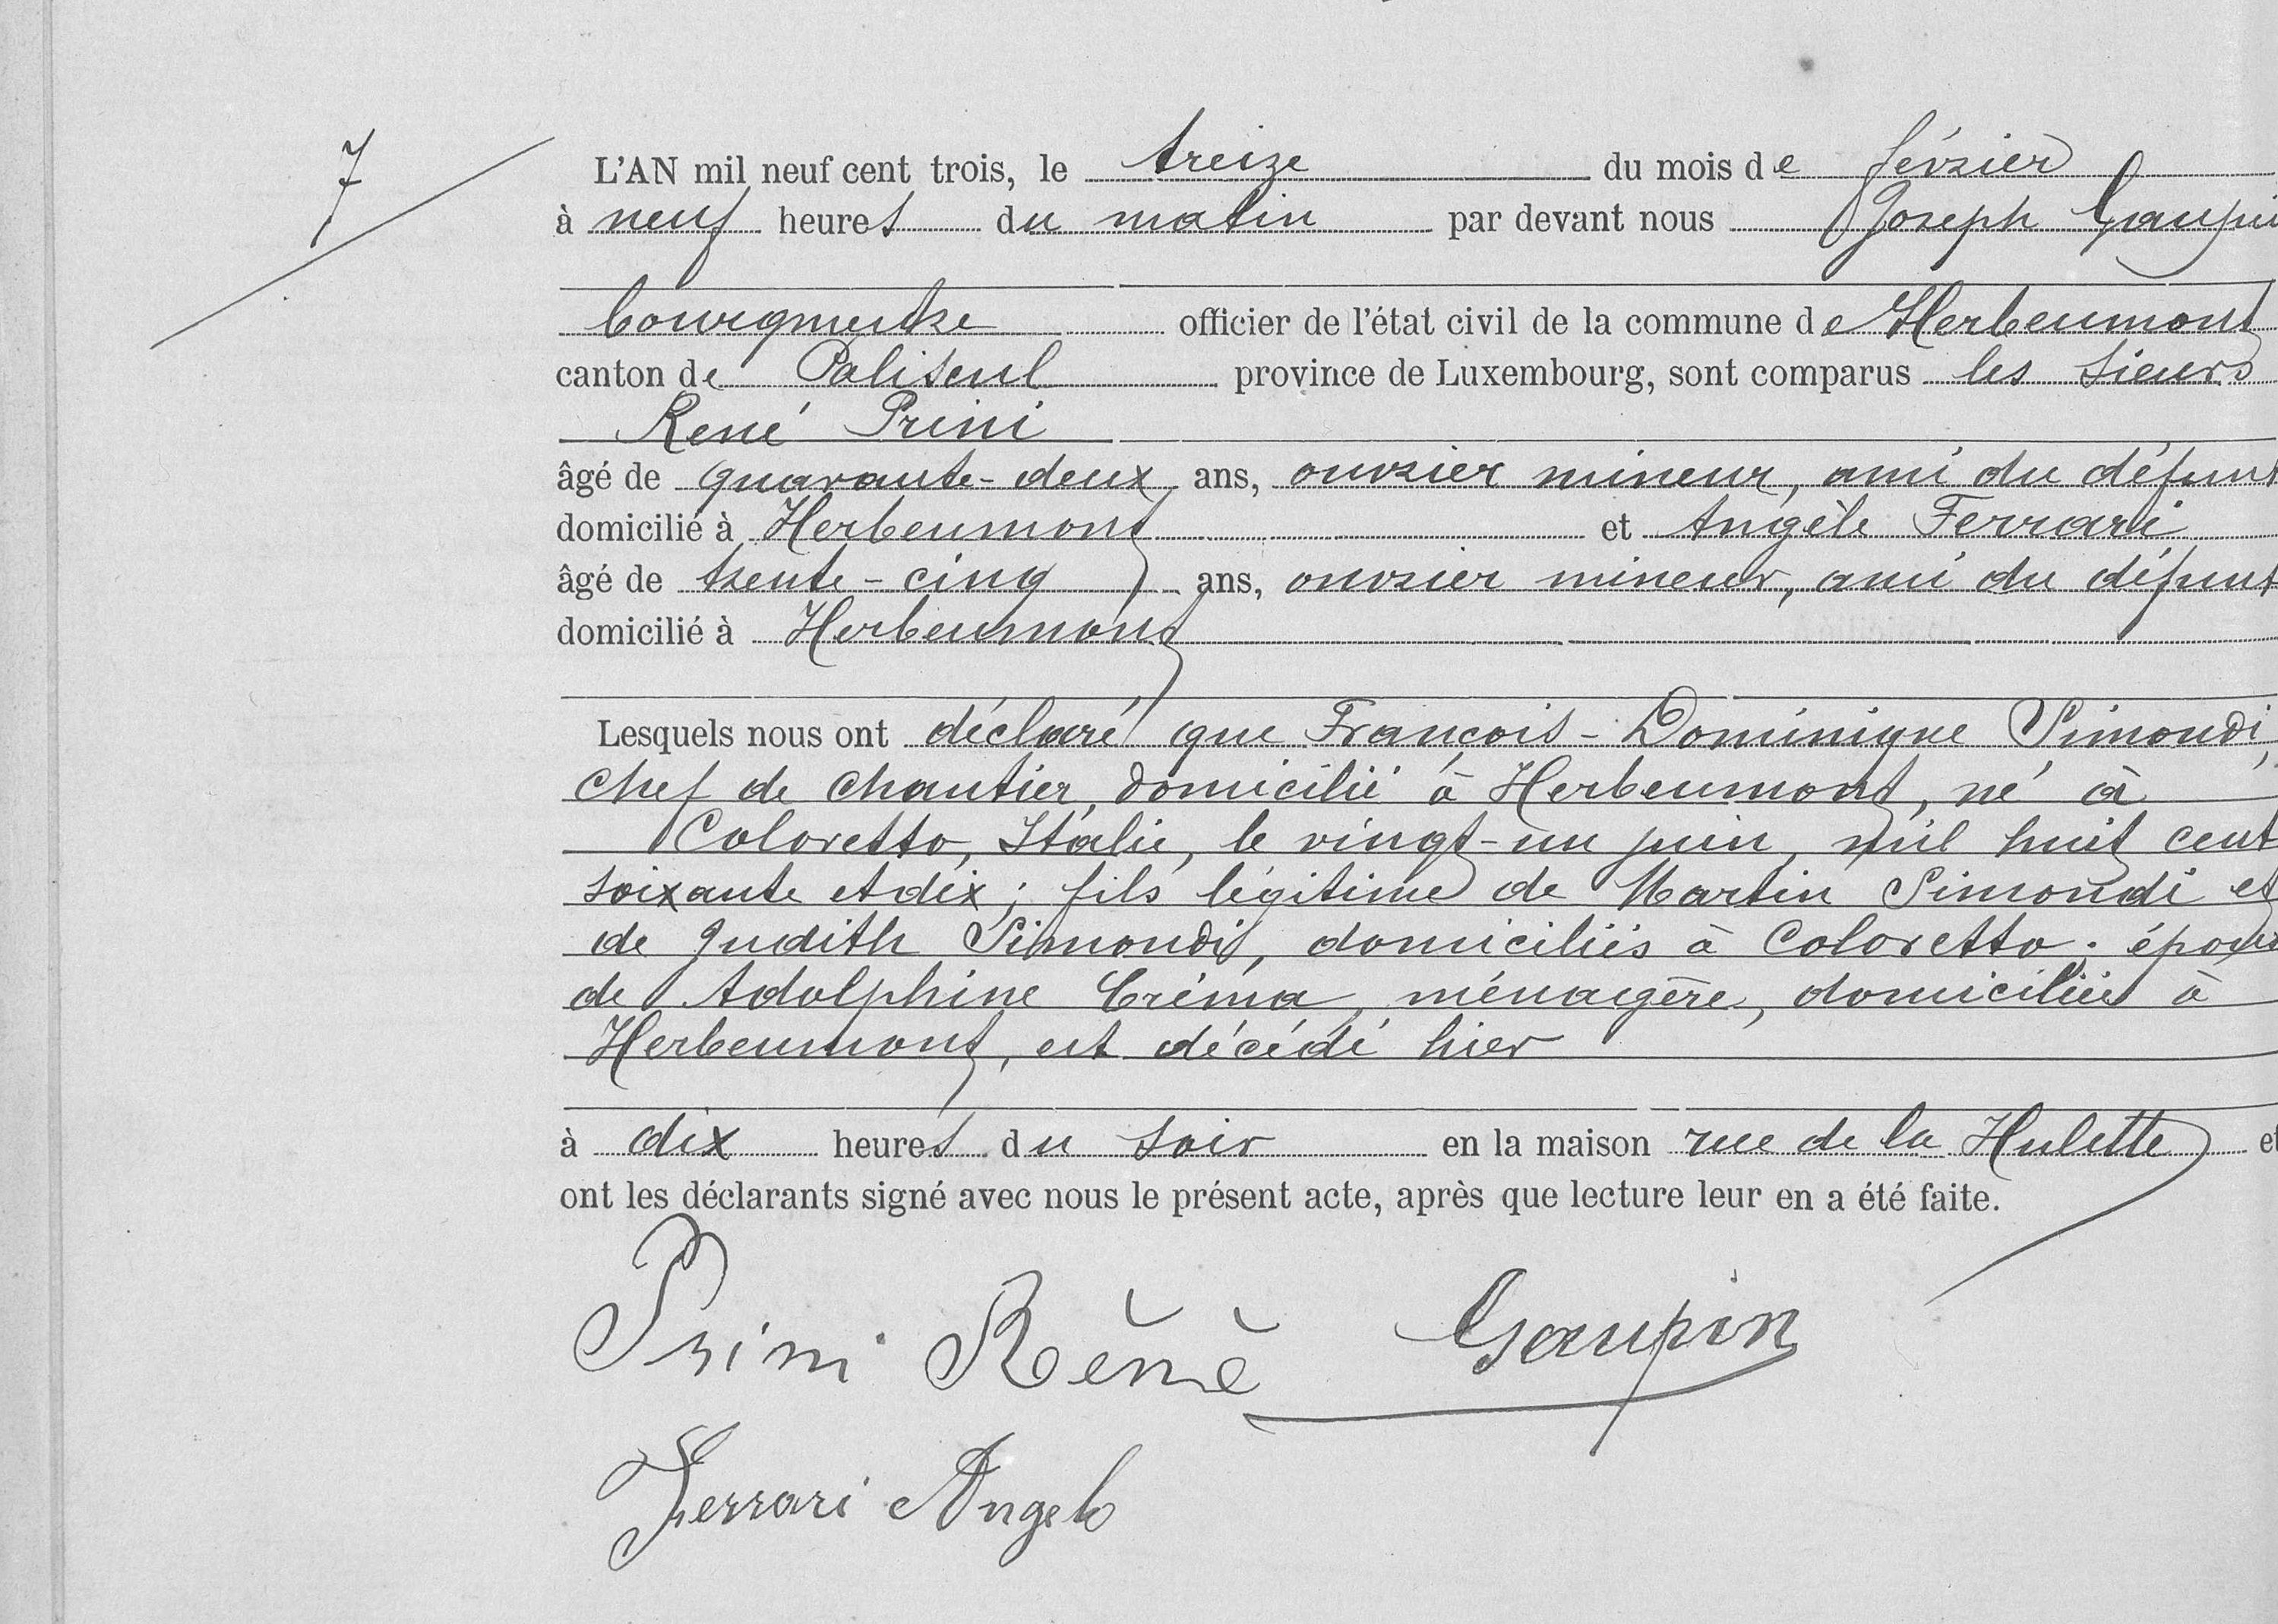 7
L'AN mil neuf cent trois, le treize du mois de février
à neuf heures du matin par devant nous Joseph Gaupin
bourgmestre officier de l'état civil de la commune de Herbeumont
canton de Paliseul province de Luxembourg, sont comparus les sieurs
René Prini
âgé de quarante-deux ans, ouvrier mineur, ami du défunt
domicilié à Herbeumont et Angèle Ferrari
âgé de trente-cinq ans, ouvrier mineur, ami du défunt
domicilié à Herbeumont
Lesquels nous ont déclaré que François-Dominique Simondi,
chef de chantier, domicilié à Herbeumont, né à
Coloretto, Italie, le vingt-un juin, mil huit cent
soixante et dix; fils légitime de Martin Simondi et
de Judith Simondi, domiciliés à Coloretto; époux
de Adolphine Créma, ménagère, domiciliée à
Herbeumont, est décédé hier
à dix heures du soir en la maison rue de la Hulette et
ont les déclarants signé avec nous le présent acte, après que lecture leur en a été faite.
Prini Rènè Gaupin
Ferrari Angelo